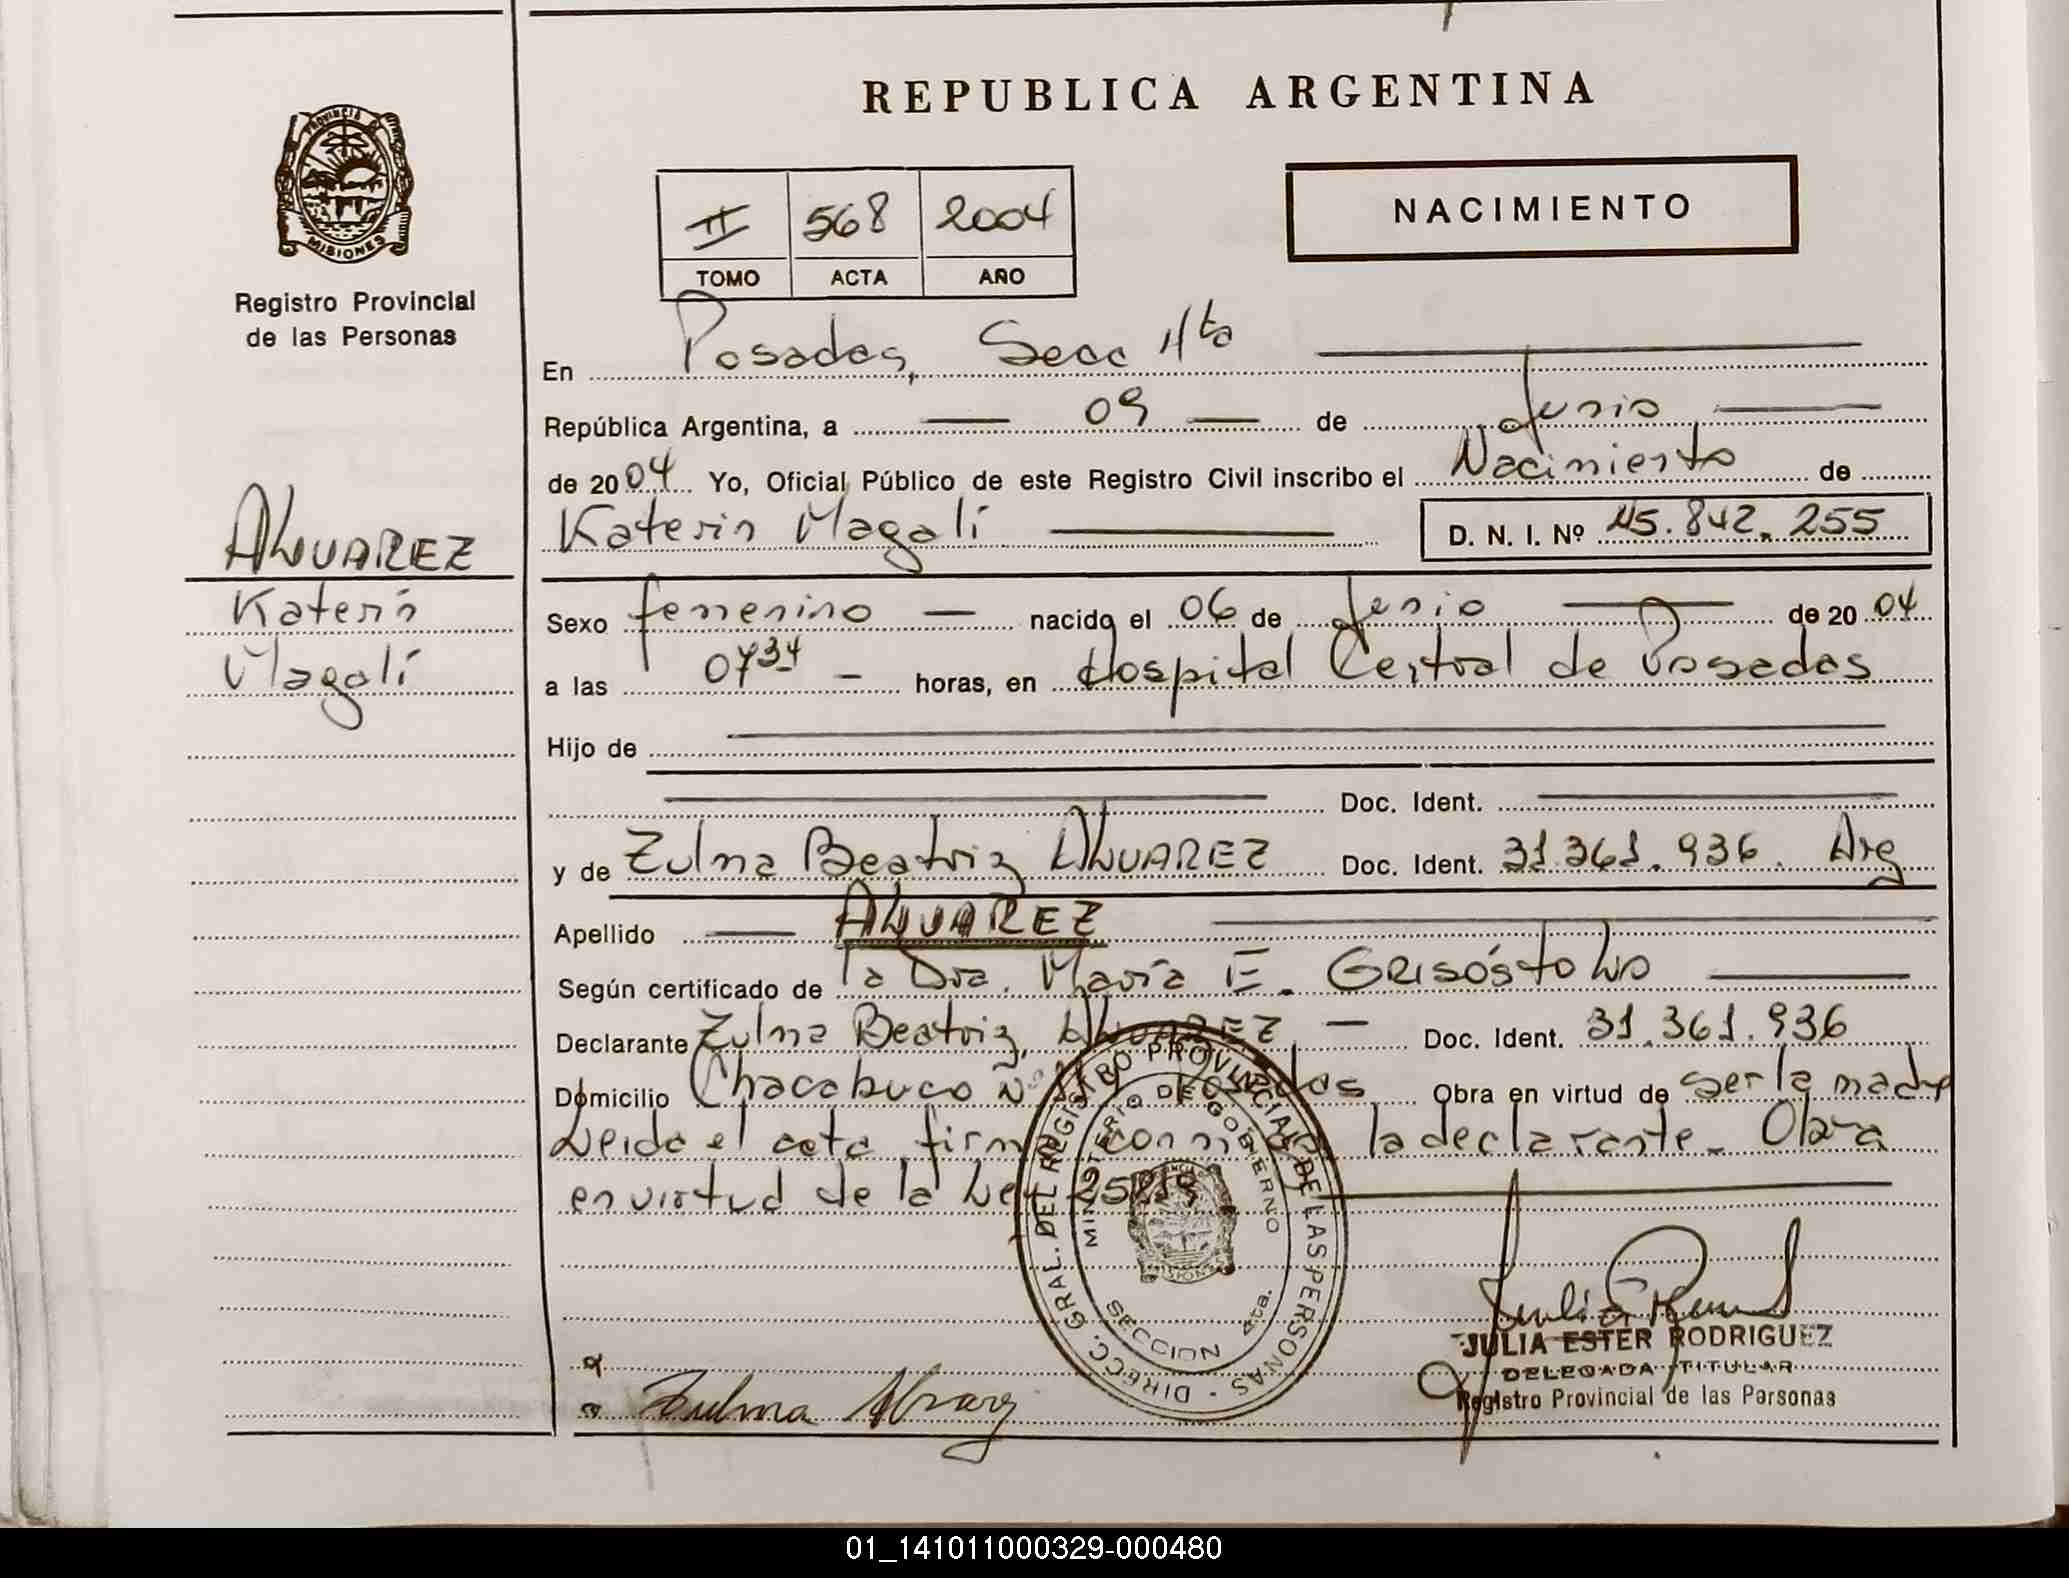 REPUBLICA ARGENTINA
PROVINCIA DE
MISIONES
Registro Provincial
de las Personas
II 568 2004
TOMO ACTA AÑO
NACIMIENTO
En Posadas, Secc 4ta
República Argentina, a 09 de Junio
de 2004 Yo, Oficial Público de este Registro Civil inscribo el Nacimiento de
Katerin Magalí D. N. I. Nº 45.842.255
ALVAREZ
Katerin
Magalí
Sexo femenino nacido el 06 de Junio de 2004
a las 0734 horas, en Hospital Central de Posadas
Hijo de
Doc. Ident.
y de Zulma Beatriz ALVAREZ Doc. Ident. 31.361.936. Arg
Apellido ALVAREZ
Según certificado de la Dra. María E. GRISÓSTOLO
Declarante Zulma Beatriz, ALVAREZ Doc. Ident. 31.361.936
Domicilio Chacabuco Nº Posadas Obra en virtud de ser la madre
Leida el acta firma conmigo la declarante. Obra
en virtud de la Ley
DIRECC. GRAL. DEL REGISTRO PROVINCIAL DE LAS PERSONAS
MINISTERIO DE GOBIERNO
SECCION 4ta.
JULIA ESTER RODRIGUEZ
DELEGADA TITULAR
Registro Provincial de las Personas
Zulma Alvarez
01_141011000329-000480